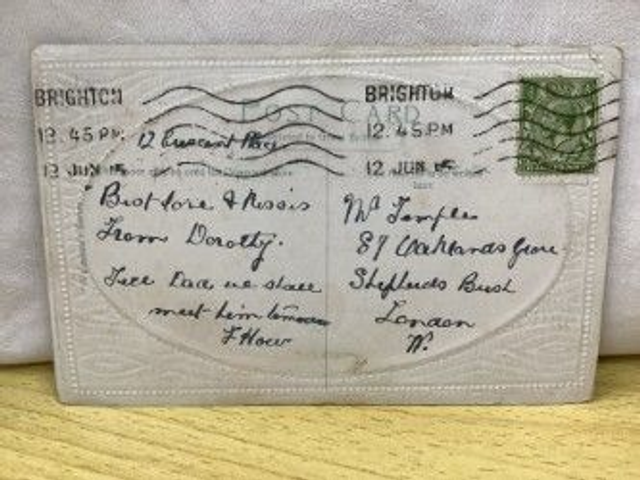 POST CARD
BRIGHTON
12.45PM
12 JUN 15
BRIGHTON
12.45PM
12 JUN 15
12 Crescent Place
Best love & Kisses
From Dorothy.
Tell Dad we shall
meet him tomorrow
F How
Mr Temple
87 Oaklands Grove
Shepherds Bush
London
W.